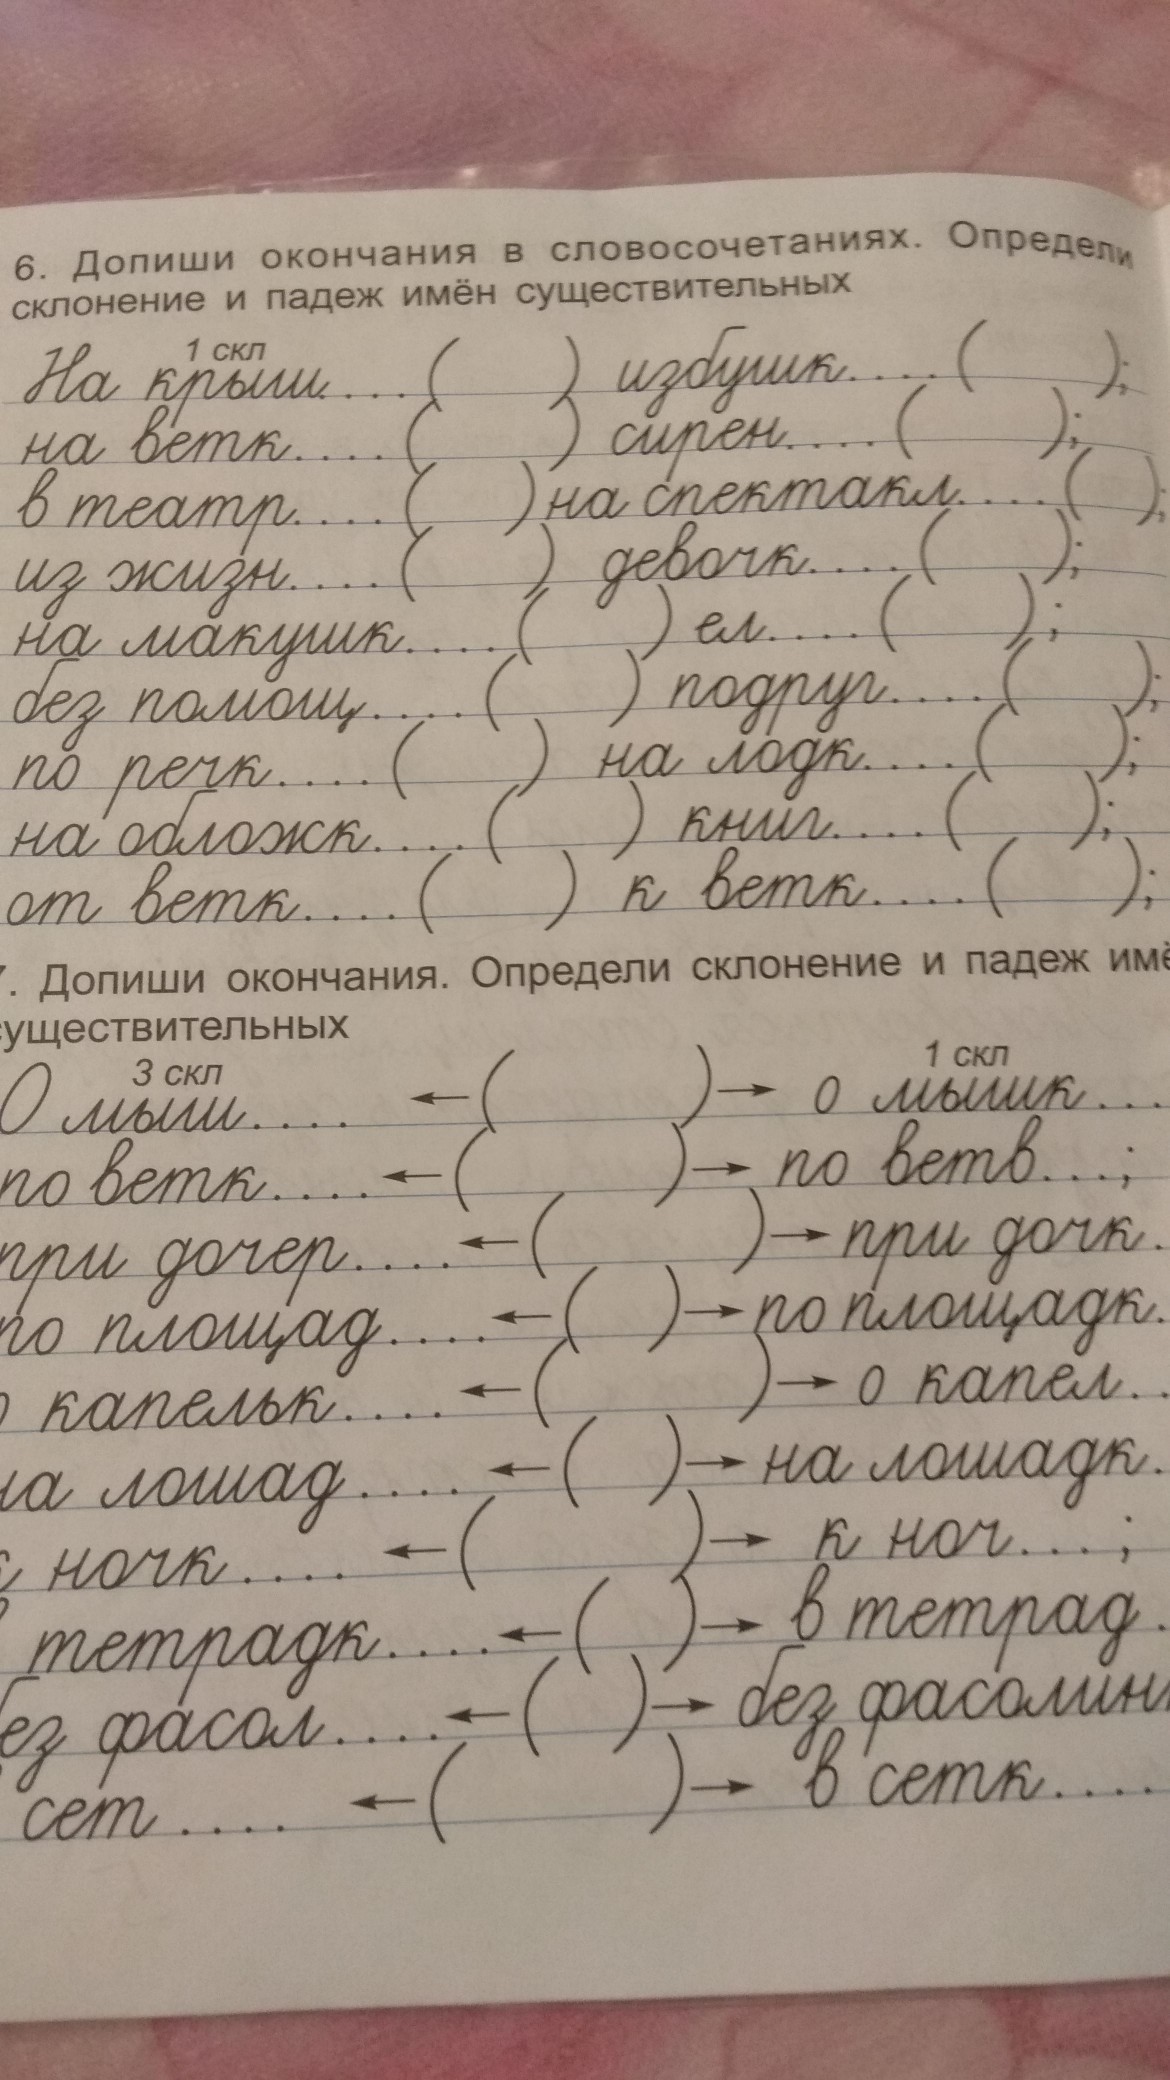 6. Допиши окончания в словосочетаниях. Определи
склонение и падеж имён существительных
1 скл
На крыш....( ) избушк....( );
на ветк....( ) сирен....( );
в театр....( ) на спектакл....( );
из жизн....( ) девочк....( );
на макушк....( ) ел....( );
без помощ....( ) подруг....( );
по речк....( ) на лодк....( );
на обложк....( ) книг....( );
от ветк....( ) к ветк....( );
7. Допиши окончания. Определи склонение и падеж имё
существительных
3 скл 1 скл
О мыш.... ←( )→ о мышк...
по ветк.... ←( )→ по ветв...;
при дочер.... ←( )→ при дочк.
по площад.... ←( )→ по площадк.
о капельк.... ←( )→ о капел..
на лошад.... ←( )→ на лошадк.
к ночк.... ←( )→ к ноч...;
в тетрадк.... ←( )→ в тетрад.
без фасол.... ←( )→ без фасолинк
сет.... ←( )→ в сетк....